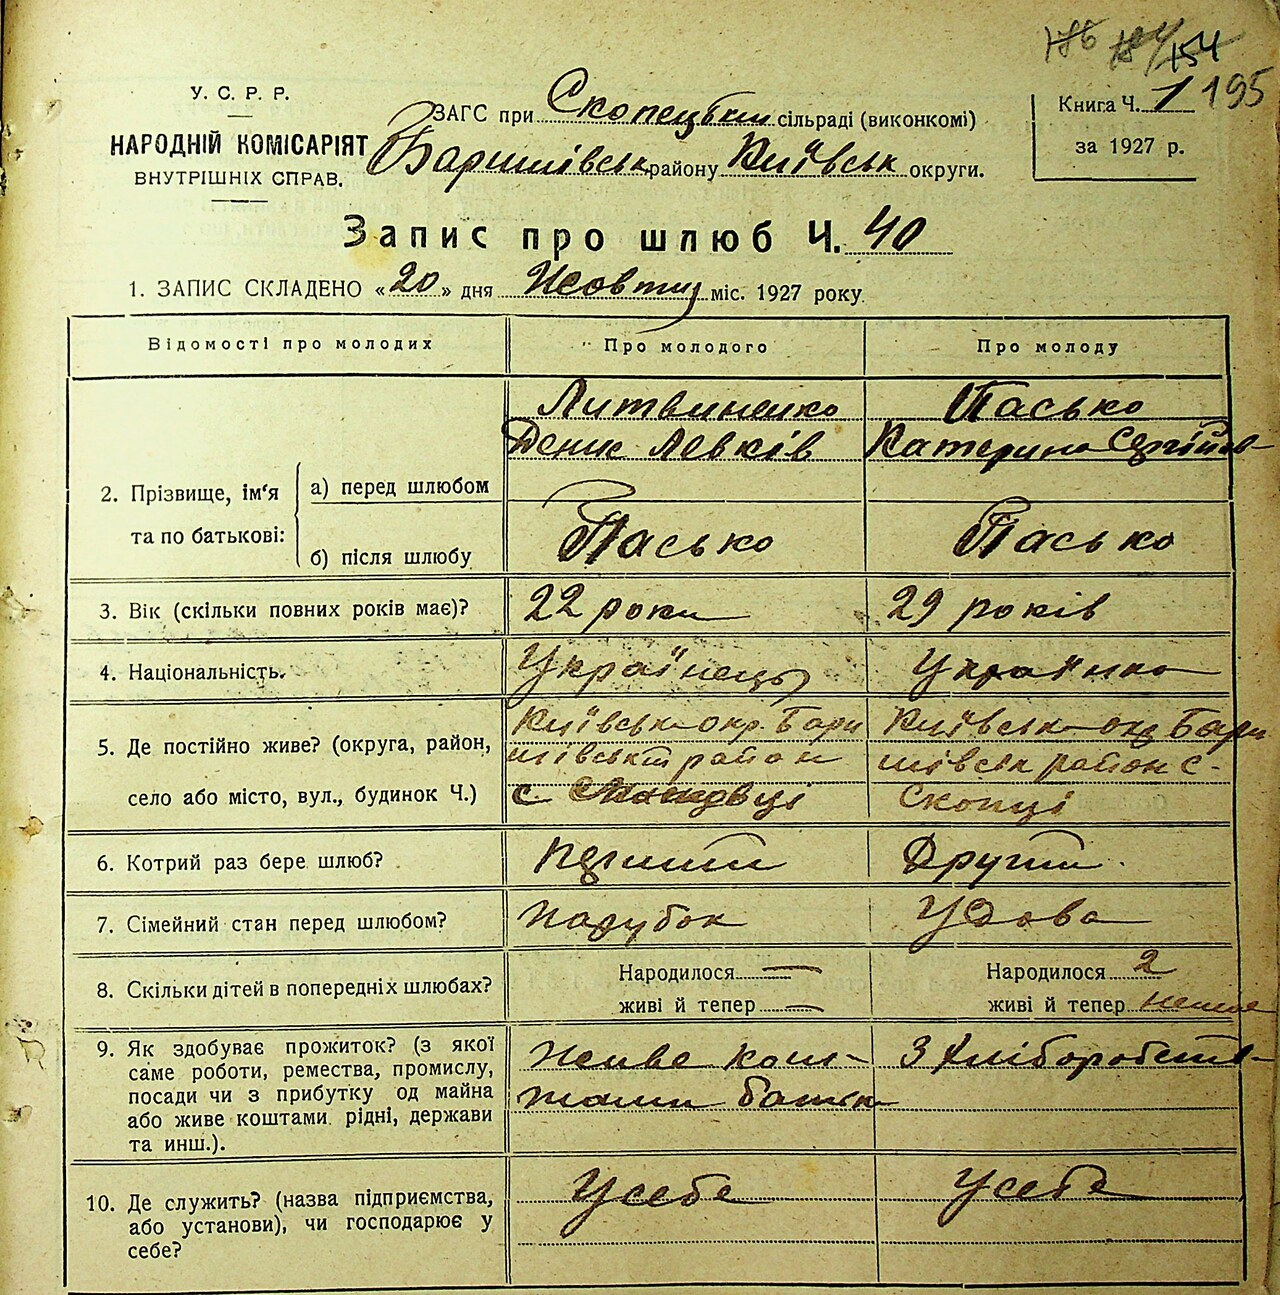 154
195
У. С. Р. Р.
НАРОДНІЙ КОМІСАРІЯТ
ВНУТРІШНІХ СПРАВ.
ЗАГС при Скопецькій сільраді (виконкомі)
Баришівськ району Київськ округи.
Книга Ч. 1
за 1927 р.
Запис про шлюб Ч. 40
1. ЗАПИС СКЛАДЕНО «20» дня Жовтня міс. 1927 року.
Відомості про молодих
Про молодого
Про молоду
2. Прізвище, ім'я
та по батькові:
а) перед шлюбом
б) після шлюбу
Литвиненко
Денис Левків
Пасько
Катерина Сергіїв
Пасько
Пасько
3. Вік (скільки повних років має)?
22 роки
29 років
4. Національність.
Українець
Українка
5. Де постійно живе? (округа, район,
село або місто, вул., будинок Ч.)
Київська окр. Бари
шівськ район
с
Київська окр Бари
шівськ район с-
Скопці
6. Котрий раз бере шлюб?
Перший
Другий
7. Сімейний стан перед шлюбом?
Парубок
Удова
8. Скільки дітей в попередніх шлюбах?
Народилося —
живі й тепер —
Народилося 2
живі й тепер немає
9. Як здобуває прожиток? (з якої
саме роботи, ремества, промислу,
посади чи з прибутку од майна
або живе коштами рідні, держави
та инш.).
Живе кош-
тами батьк
З Хліборобств
10. Де служить? (назва підприємства,
або установи), чи господарює у
себе?
У себе
У себе